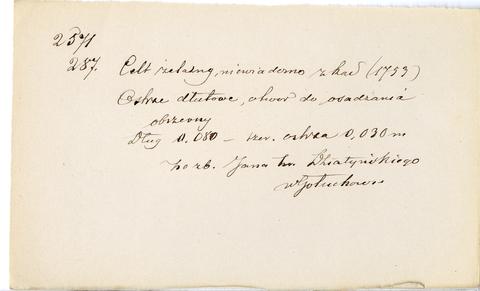 2571
287. Celt żelazny, niewiadomo zkąd (1753)
Ostrze dłutowe, otwór do osadzania
obszerny
Dług 0,080 – szer. ostrza 0,030 m
ze zb. Jana hr. Działyńskiego
w Gołuchowie